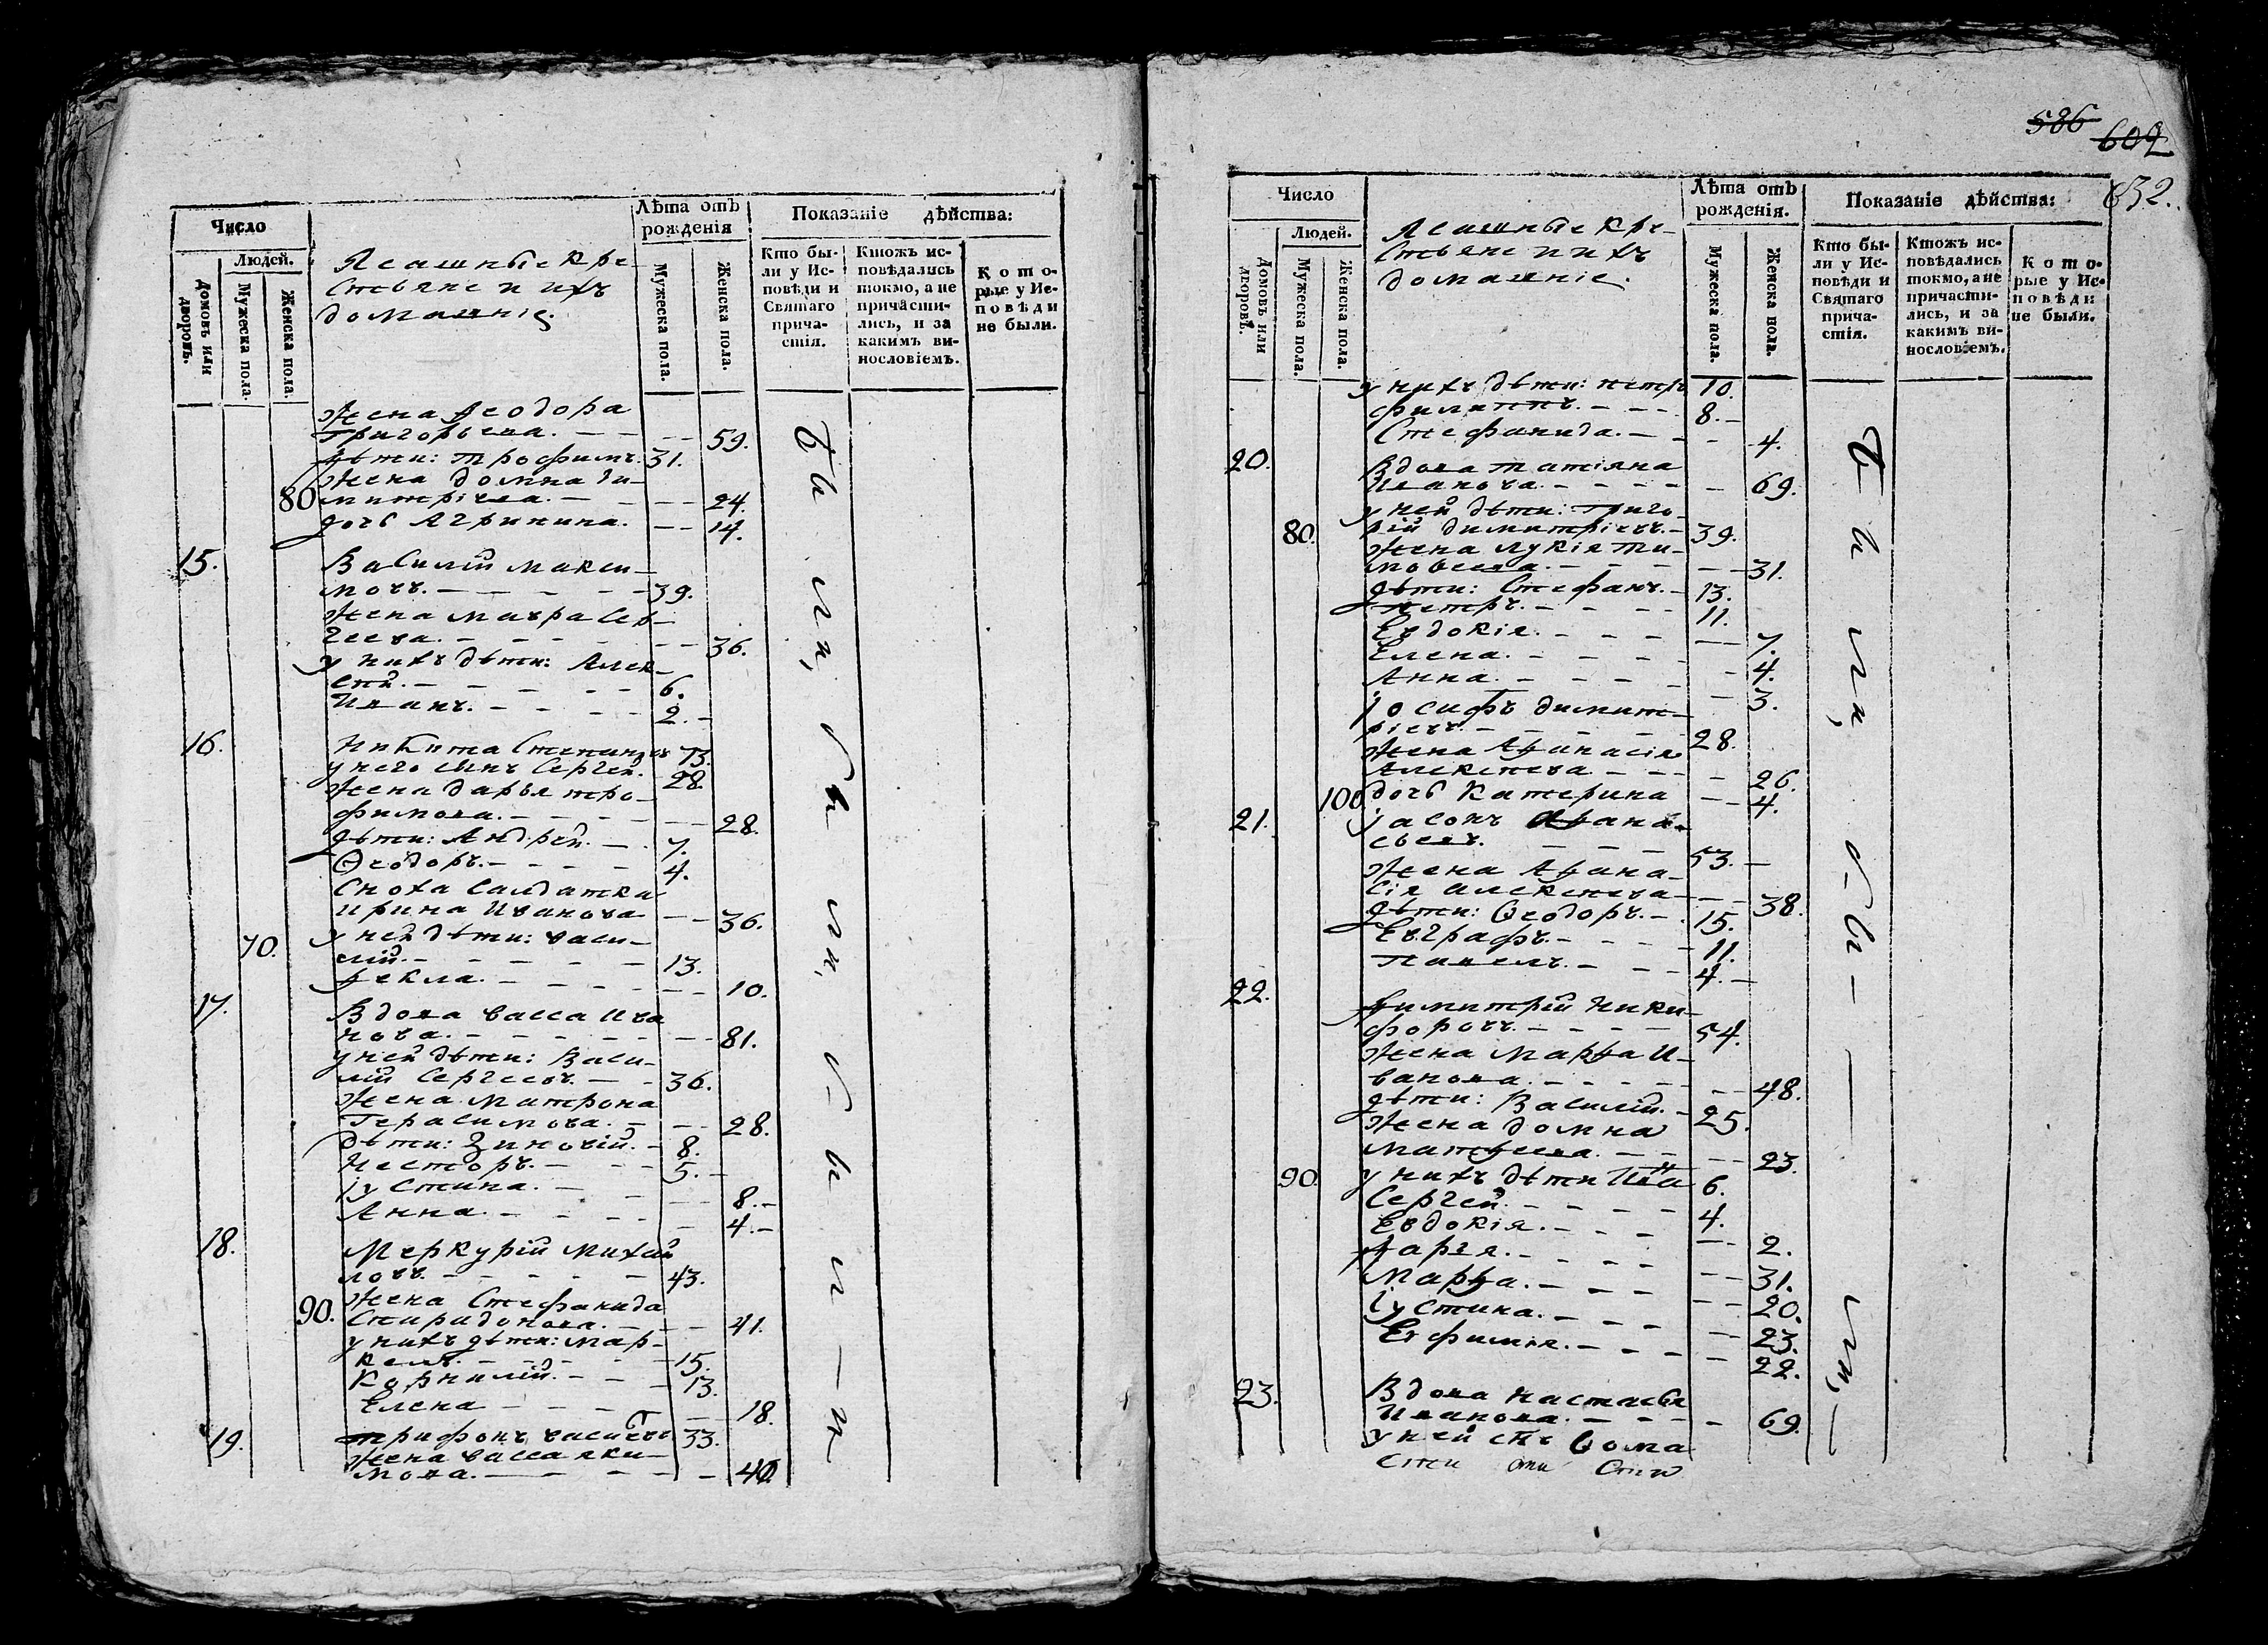 Число
Людей.
Домовъ или дворовъ.
Мужеска пола.
Женска пола.
Ясашные кре-
стьяне и ихъ
домашніе.
Лѣта отъ рожденія
Мужеска пола.
Женска пола.
Показаніе дѣйства:
Кто бы-
ли у Ис-
повѣди и
Святаго
прича-
стія.
Ктожъ ис-
повѣдались
токмо, а не
причасти-
лись, и за
какимъ ви-
нословіемъ.
Кото-
рые у Ис-
повѣди
не были.
Жена Ѳеодора
Григорьева. 59.
Дѣти: Трофимъ. 31.
Жена Домна Ди-
80 митріева. 24.
Дочь Агрипина. 14.
15. Василій Макси-
мовъ. 39.
Жена Мавра Сер-
геева. 36.
У нихъ дѣти: Алек-
сѣй. 6.
Иванъ. 2.
16. Никита Степановъ 73.
У него сынъ Сергей. 28.
Жена Дарья Тро-
фимова. 28.
Дѣти: Андрей. 7.
Ѳеодоръ. 4.
Сноха салдатка
Ирина Иванова 36.
70. У ней дѣти: Васи-
лій. 13.
Ѳекла. 10.
17. Вдова Васса Ива
нова. 81.
У ней дѣти: Васи-
лій Сергеевъ. 36.
Жена Матрона
Герасимова. 28.
Дѣти: Зиновій. 8.
Несторъ. 5.
Іустина. 8.
Анна. 4.
18. Меркурій Михай
ловъ. 43.
Жена Стефанида
90. Спиридонова. 41.
У нихъ дѣти: Мар-
келъ. 15.
Корнилій. 13.
Елена 18.
19. Трифонъ Васильевъ 33.
Жена Васса Яки-
мова. 40.
были, были, были
586
602
632.
Число
Людей.
Домовъ или дворовъ.
Мужеска пола.
Женска пола.
Ясашные кре-
стьяне и ихъ
домашніе.
Лѣта отъ рожденія.
Мужеска пола.
Женска пола.
Показаніе дѣйства:
Кто бы-
ли у Ис-
повѣди и
Святаго
прича-
стія.
Ктожъ ис-
повѣдались
токмо, а не
причасти-
лись, и за
какимъ ви-
нословіемъ.
Кото-
рые у Ис-
повѣди
не были.
У нихъ дѣти: Петръ 10.
Филиппъ. 8.
Стефанида. 4.
20. Вдова Татіяна
Иванова. 69.
У ней дѣти: Григо-
80. рій Димитріевъ. 39.
Жена Лукія Ти-
мовеева. 31.
Дѣти: Стефанъ. 13.
Петръ. 11.
Евдокія. 7.
Елена. 4.
Анна. 3.
Іосифъ Димит-
ріевъ. 28.
Жена Аѳанасія
Алексѣева 26.
100 Дочь Катерина 4.
21. Іасонъ Аѳана-
сьевъ. 53.
Жена Аѳана-
сія Алексѣева 38.
Дѣти: Ѳеодоръ. 15.
Евграфъ. 11.
Павелъ. 4.
22. Димитрій Ники-
форовъ. 54.
Жена Марѳа И-
ванова. 48.
Дѣти: Василій. 25.
Жена Домна
Матѳеева. 23.
90. У нихъ дѣти Иванъ 6.
Сергей. 4.
Евдокія. 2.
Дарья. 31.
Марѳа. 20.
Іустина. 23.
Евфимія. 22.
23. Вдова Настасья
Иванова. 69.
У ней сынъ Ѳома
были, были,